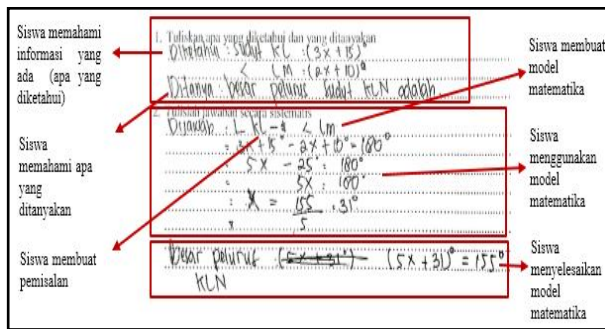 Siswa memahami
informasi yang
ada (apa yang
diketahui)
Siswa
memahami apa
yang
ditanyakan
Siswa membuat
pemisalan
1. Tuliskan apa yang diketahui dan yang ditanyakan
Diketahui : Sudut KL : (3x + 15)°
< LM : (2x + 10)°
Ditanya : besar pelurus sudut KLN adalah
2. Tulislah jawaban secara sistematis
Dijawab : L KL - < Lm
= 3x + 15° - 2x + 10° = 180°
= 5x - 25° : 180°
= 5x : 180°
: x = 155 = 31°
5
Besar pelurus (5x + 31)° = 155°
KLN
Siswa membuat
model
matematika
Siswa
menggunakan
model
matematika
Siswa
menyelesaikan
model
matematika